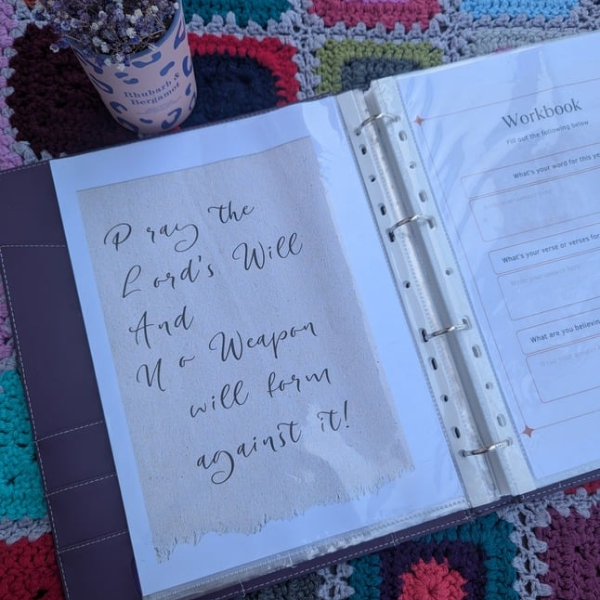 Rhubarb &
Bergamot
Pray the
Lord's Will
And
No Weapon
will form
against it!
Workbook
Fill out the following below
What's your word for this ye
What's your verse or verses for
What are you believing